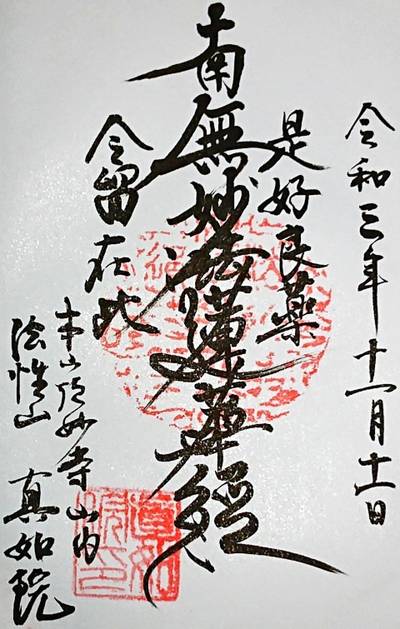 令和三年十一月十一日
是好良薬
南無妙法蓮華経
今留在此
本山頂妙寺山内
陰性山 真如院